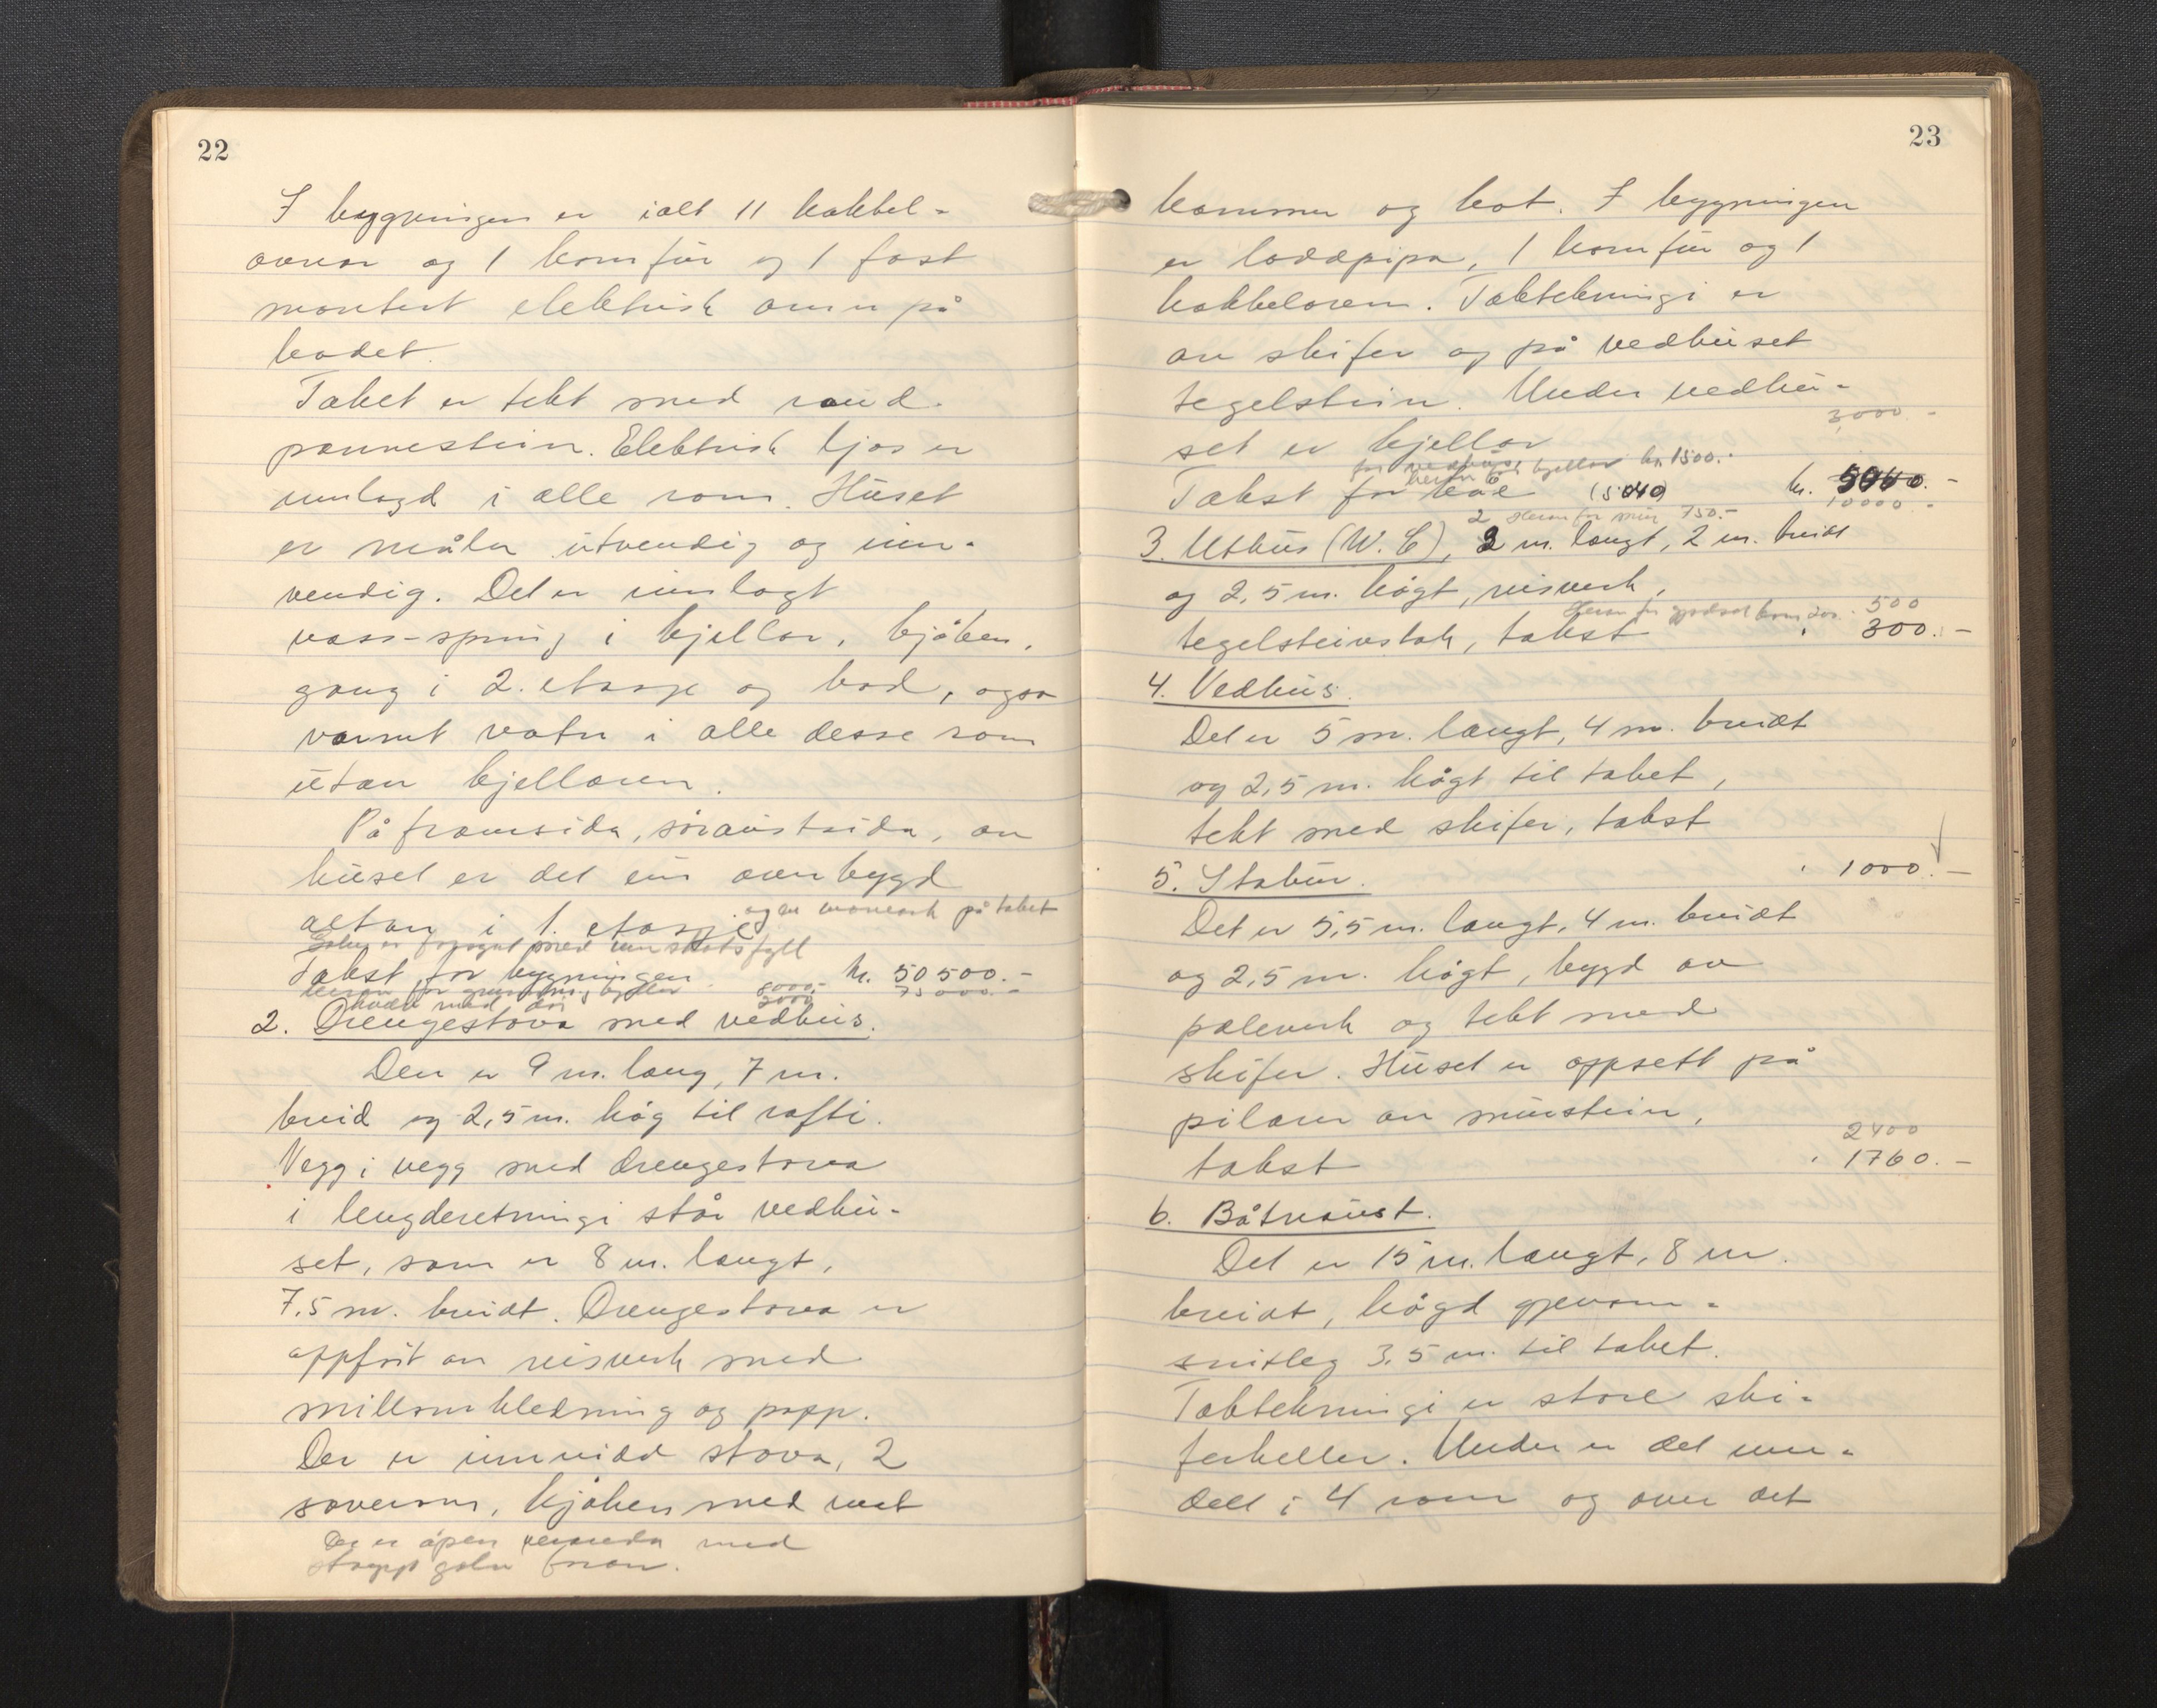 22
I bygningen er ialt 11 kakkel-
ovnar og 1 komfür og 1 fast
montert elektrisk omn på
badet.
Taket er tekt med raud
pannestein. Elektrisk ljos er
innlagd i alle rom. Huset
er måla utvendig og inn-
vendig. Det er innlagt
vass-spring i kjellar, kjøken,
gang i 2. etasje og bad, også
varmt vatn i alle desse rom
utan kjellaren.
På framsida, søraustsida, av
huset er det ein overbygd
altan i 1. etasje og en på taket
med
Takst for bygningen kr. 50500.-
herav for kjellar 8000.- 75000.-
2000
2. Drengestova med vedhus.
Den er 9 m. lang, 7 m.
breid og 2,5 m. høg til rafti.
Vegg i vegg med drengestova
i lengderetningi står vedhu-
set, som er 8 m. langt,
7,5 m. breidt. Drengestova er
oppført av reisverk med
millomkledning og papp.
Der er innreidd stova, 2
soverom, kjøken med mat
Der er åpen veranda med
støypt golv framan.
23
kammer og kot. I bygningen
er loddpipa, 1 komfür og 1
kakkelovn. Taktekningi er
av skifer og på vedhuset
tegelstein. Under vedhu-
3000.-
set er kjellar
for vedhuset kjellar kr. 1500.-
Takst for herav (5040) kr. 5040.-
10000.-
2 Herav for mur 750.-
3. Uthus (W.C), 2 m. langt, 2 m. breidt
og 2,5 m. høgt, reisverk,
Herav for 500
tegelsteinstak, takst " 300.-
4. Vedhus.
Det er 5 m. langt, 4 m. breidt
og 2,5 m. høgt til taket,
tekt med skifer, takst
" 1000.-
5. Stabur.
Det er 5,5 m. langt, 4 m. breidt
og 2,5 m. høgt, bygd av
paleverk og tekt med
skifer. Huset er oppsett på
pilarer av murstein,
2400
takst " 1760.-
6. Båtnaust.
Det er 15 m. langt, 8 m.
breidt, høgd gjenom-
snitleg 3,5 m. til taket.
Taktekningi er store ski-
ferheller. Under er det inn-
delt i 4 rom og over det